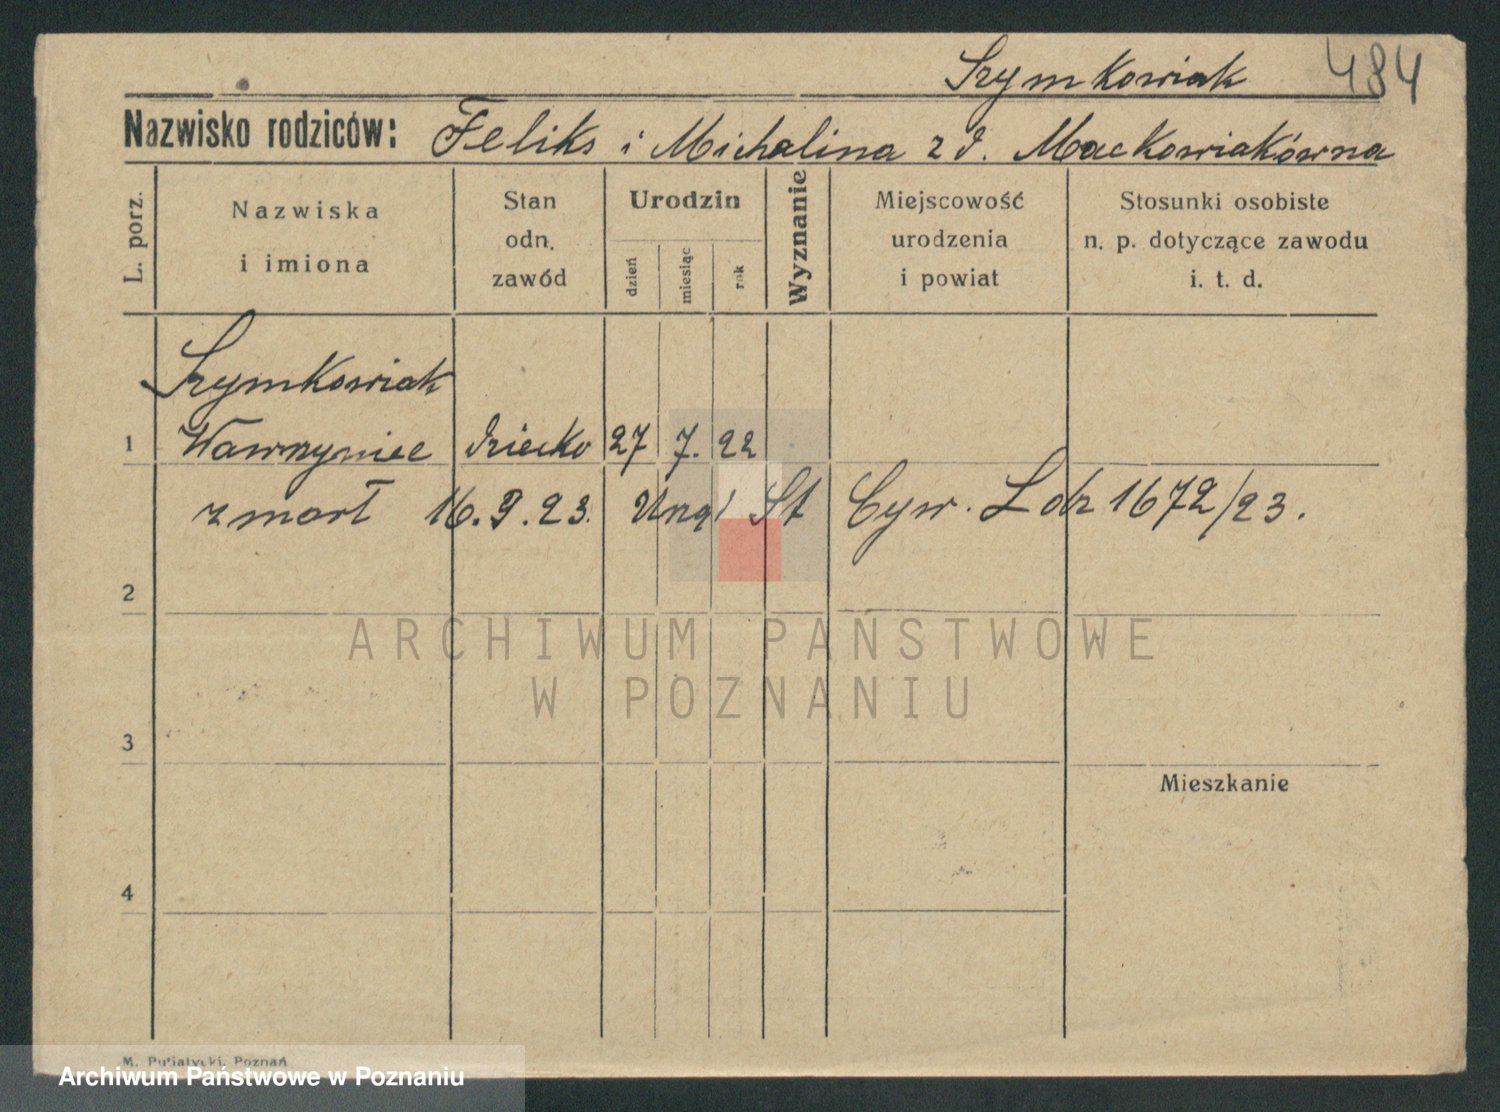 Szymkowiak 484
Nazwisko rodziców: Feliks i Michalina z d. Mackowiakówna
L. porz.
Nazwiska
i imiona
Stan
odn.
zawód
Urodzin
dzień
miesiąc
rok
Wyznanie
Miejscowość
urodzenia
i powiat
Stosunki osobiste
n. p. dotyczące zawodu
i. t. d.
Szymkowiak
1 Wawrzyniec dziecko 27 7. 22
zmarł 16. 9. 23. Urząd St Cyw. L dz 1672/23.
2
ARCHIWUM PAŃSTWOWE
W POZNANIU
3
Mieszkanie
4
M. Putiatycki, Poznań
Archiwum Państwowe w Poznaniu